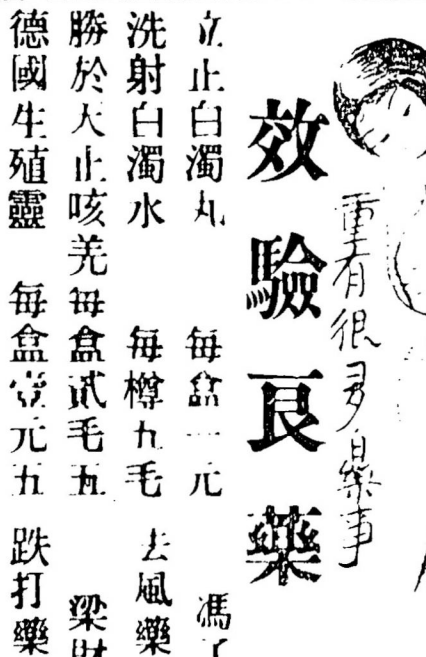 重有很多樂事
效驗良藥
立止白濁丸 每盒一元 馮
洗射白濁水 每樽九毛 去風藥
勝於大止咳羌 每盒貳毛五 梁財
德國生殖靈 每盒壹元五 跌打藥